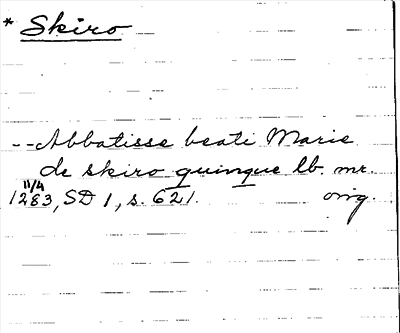 * Skiro
--Abbatisse beati Marie
de skiro quinque lb. mr.
11/4
1283, SD 1, s. 621. orig.